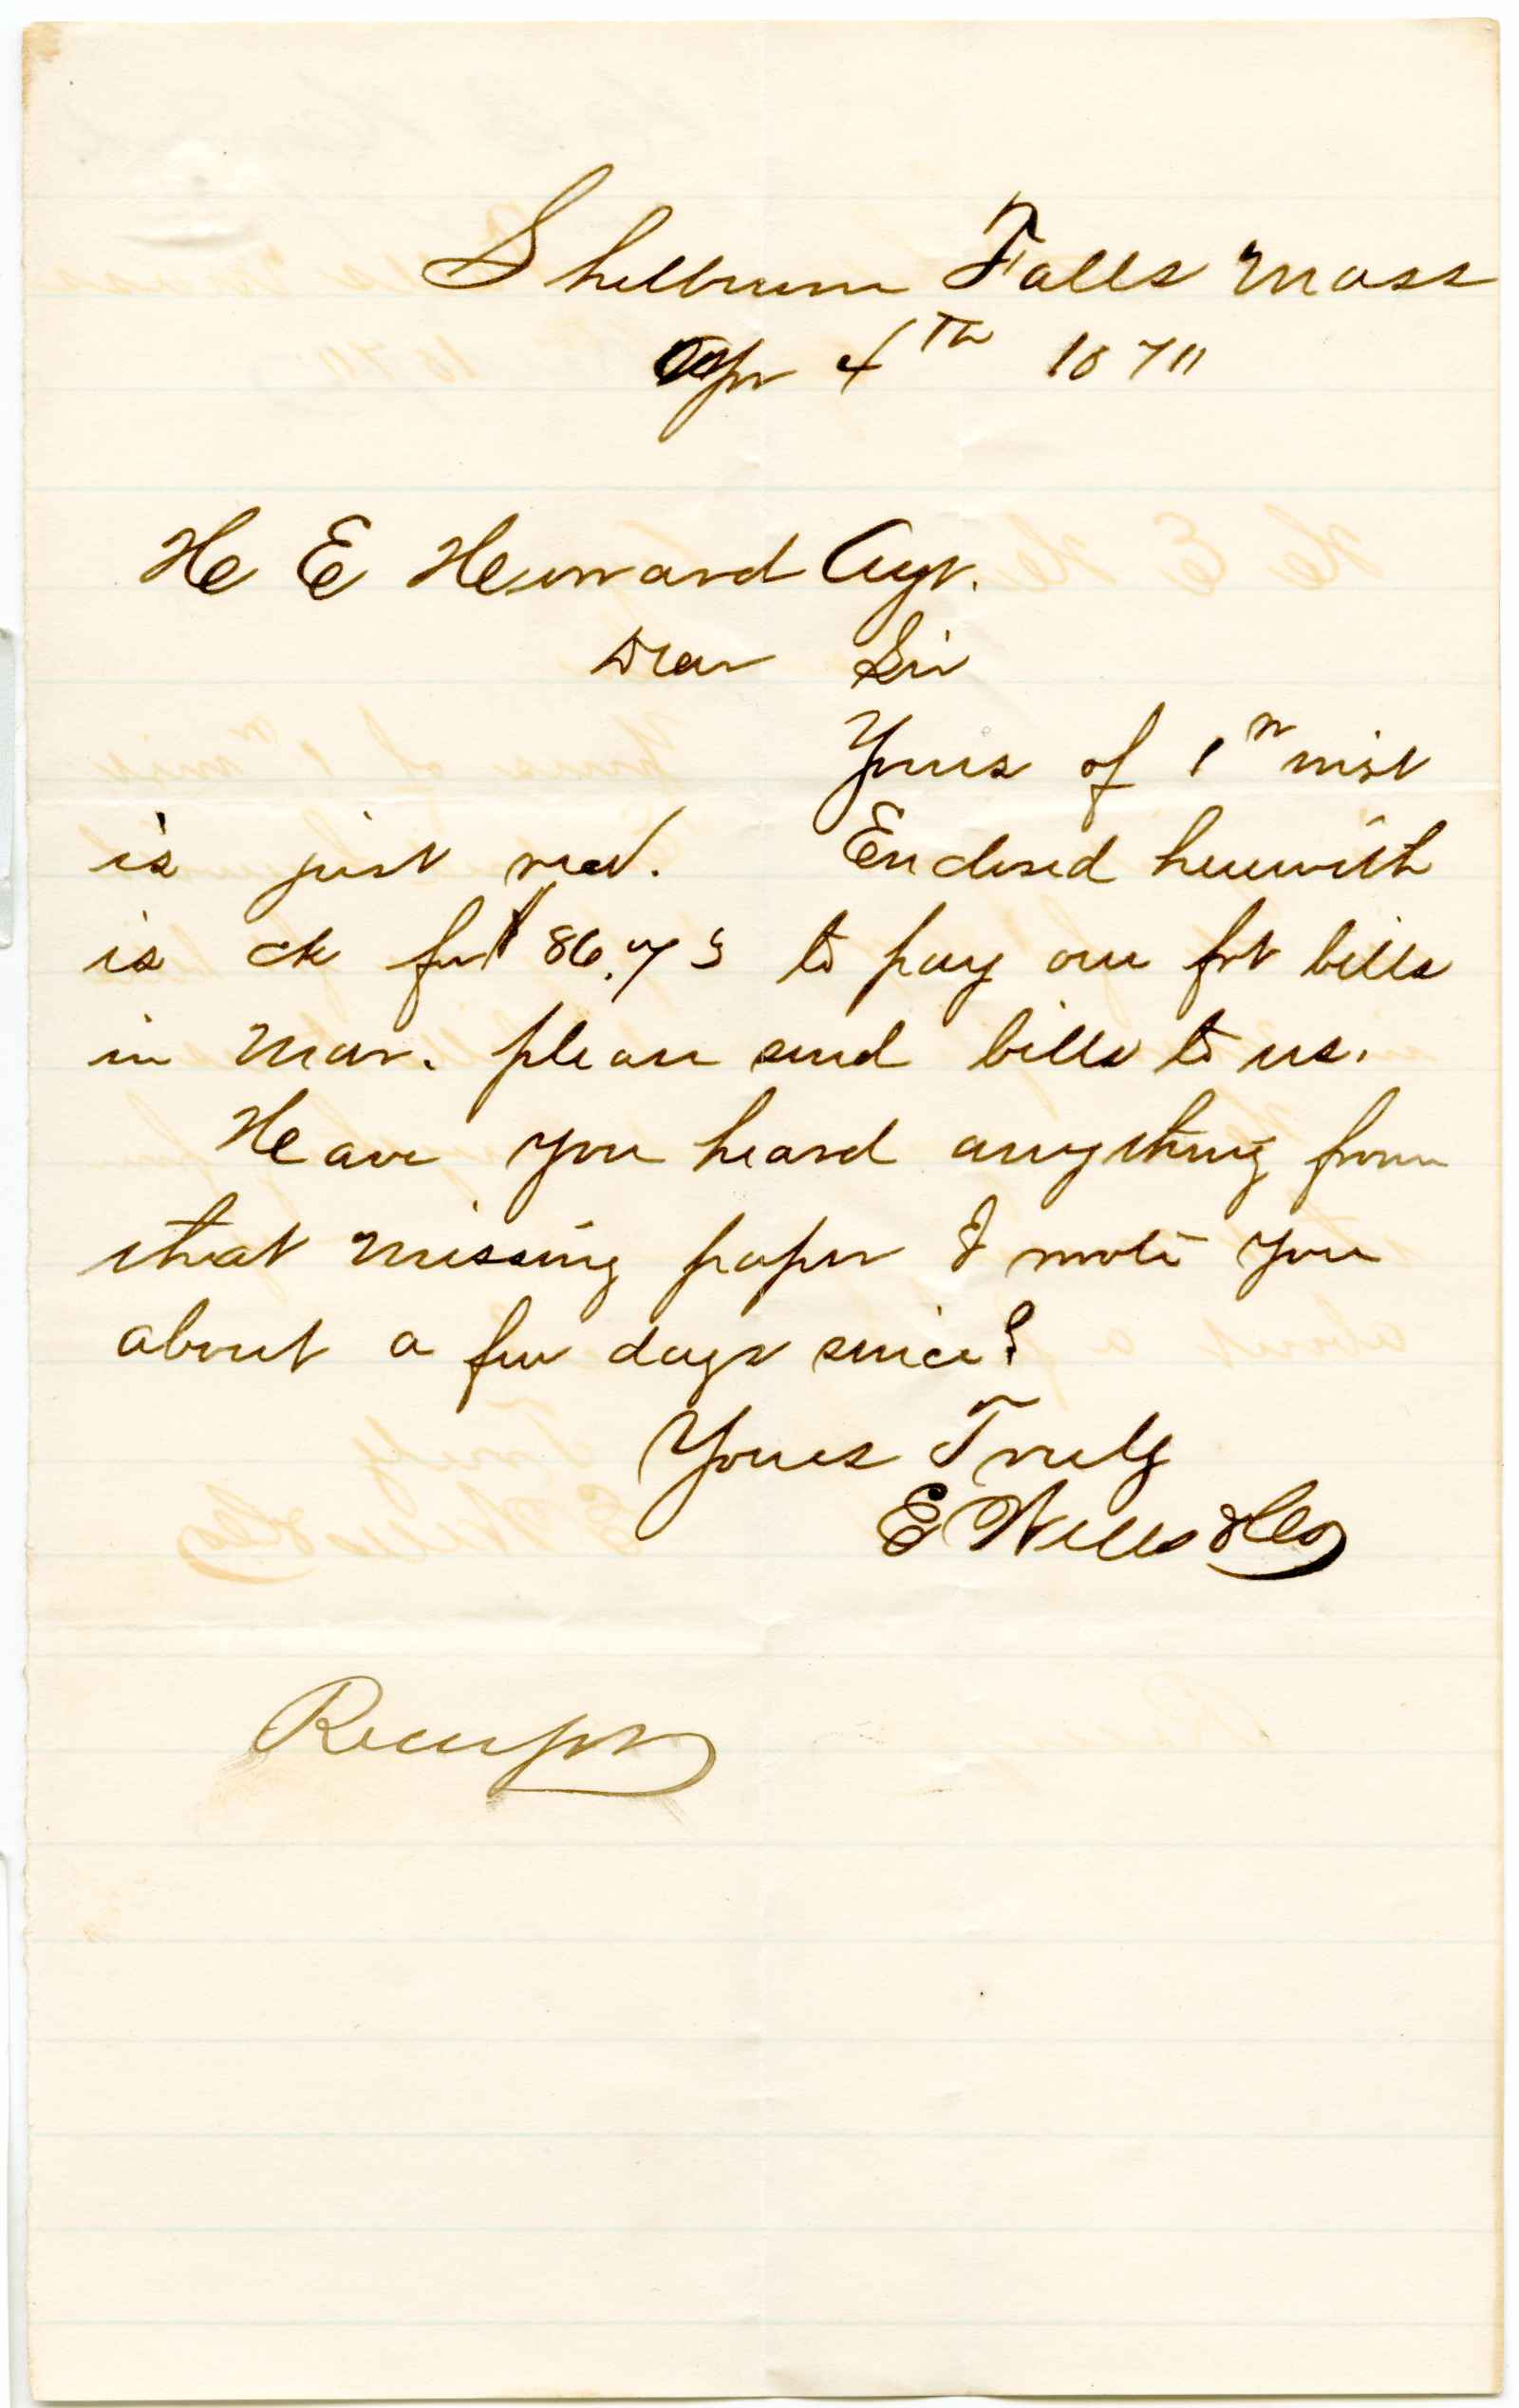 Shelburne Falls Mass
Apr 4th 
H E Hayward Agt.
Dear Sir
Yours of 1st inst
is just recd. Enclosed herewith
is ck for $86.75 to pay our frt bills
in Mar. please send bills to us.
Have you heard anything from
that missing paper I wrote you
about a few days since?
Yours Truly
E Wells & Co
Receipt